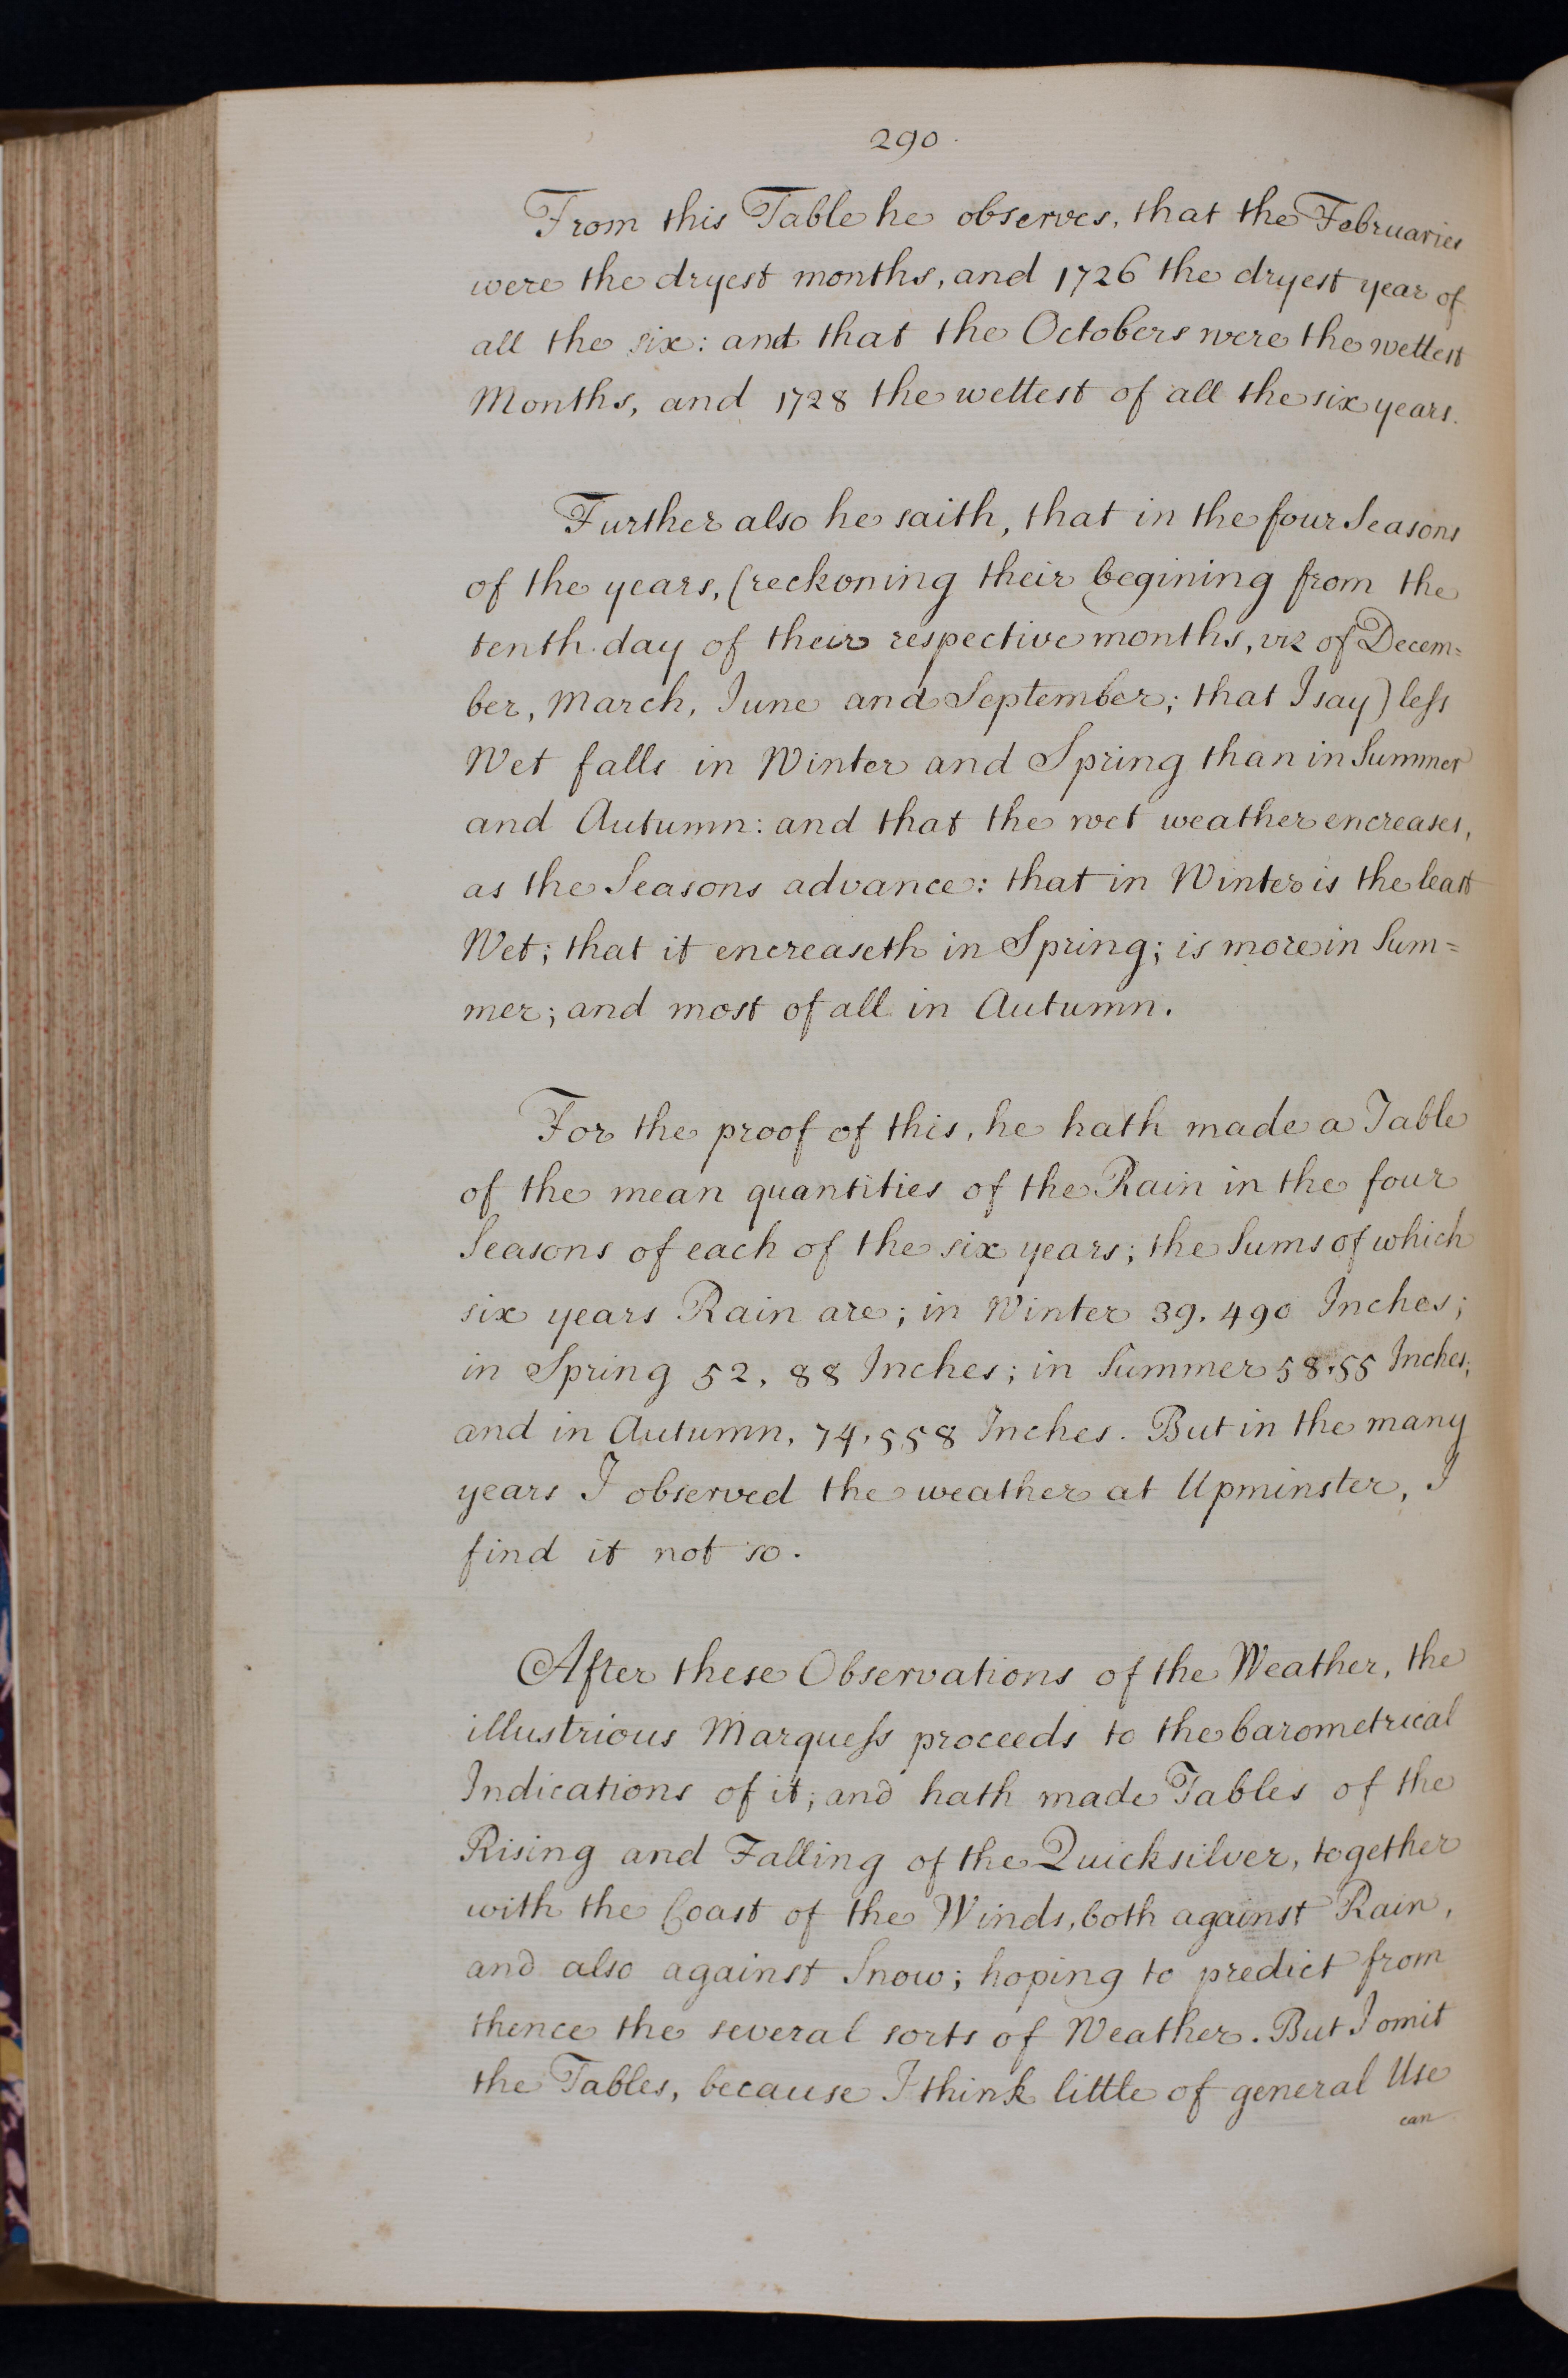 290.
From this Table he observes, that the Februaries
were the dryest months, and 1726 the dryest year of
all the six: and that the Octobers were the wettest
Months, and 1728 the wettest of all the six years.
Further also he saith, that in the four Seasons
of the years, (reckoning their begining from the
tenth day of their respective months, viz of Decem=
ber, March, June and September; that I say) less
Wet falls in Winter and Spring than in Summer
and Autumn: and that the wet weather encreases,
as the Seasons advance: that in Winter is the least
Wet; that it encreaseth in Spring; is more in Sum=
mer; and most of all in Autumn.
For the proof of this, he hath made a Table
of the mean quantities of the Rain in the four
Seasons of each of the six years; the Sums of which
six years Rain are; in Winter 39.490 Inches;
in Spring 52,88 Inches; in Summer 58.55 Inches;
and in Autumn, 74,558 Inches. But in the many
years I observed the weather at Upminster, I
find it not so.
After these Observations of the Weather, the
illustrious Marquess proceeds to the barometrical
Indications of it; and hath made Tables of the
Rising and Falling of the Quicksilver, together
with the Coast of the Winds, both against Rain,
and also against Snow; hoping to predict from
thence the several sorts of Weather. But I omit
the Tables, because I think little of general Use
can